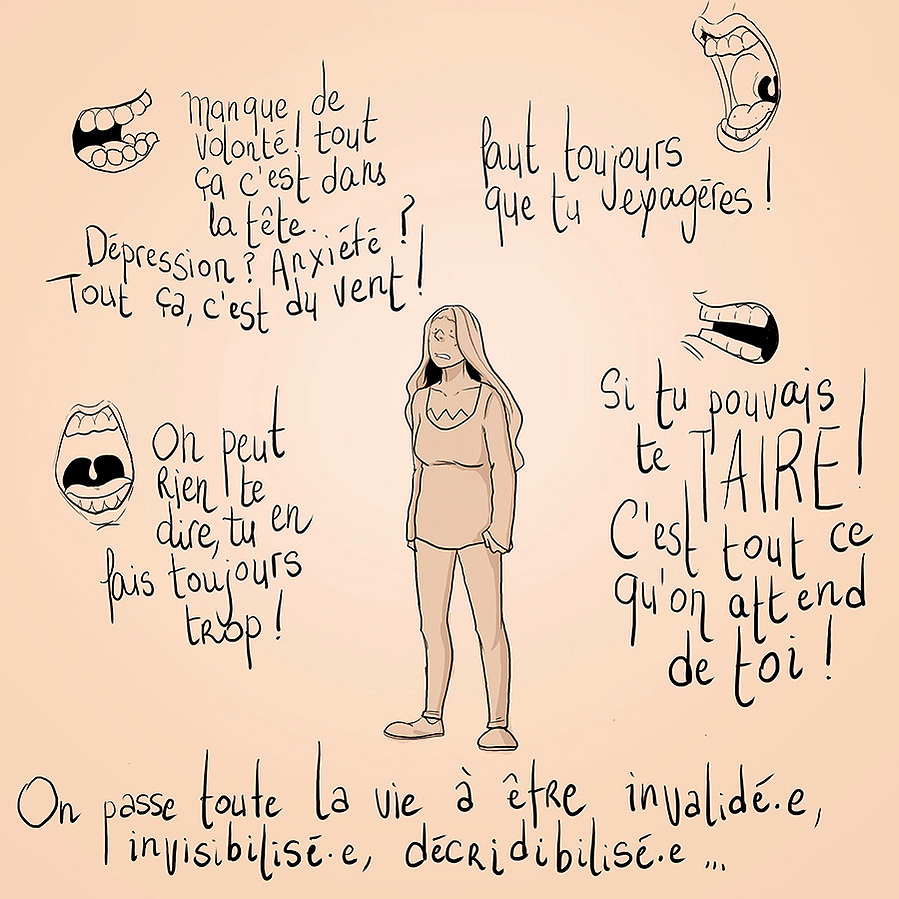 manque de
volonté! tout
ça c'est dans
la tête..
Dépression? Anxiété?
Tout ça, c'est du vent!
faut toujours
que tu exagères!
On peut
Rien te
dire, tu en
fais toujours
trop!
Si tu pouvais
te TAIRE!
C'est tout ce
qu'on attend
de toi!
On passe toute la vie à être invalidé.e,
invisibilisé.e, décridibilisé.e...